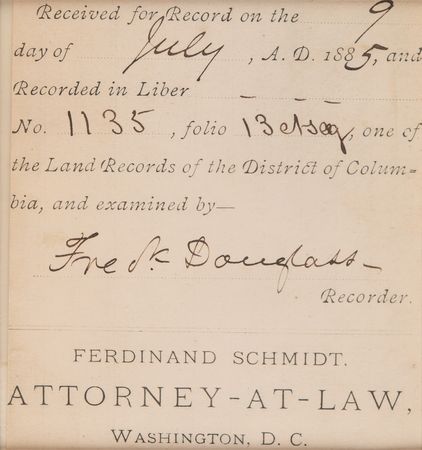 Received for Record on the 9
day of July, A. D. 1885, and
Recorded in Liber
No. 1135, folio 13 et seq, one of
the Land Records of the District of Colum-
bia, and examined by—
Fredk Douglass
Recorder.
FERDINAND SCHMIDT.
ATTORNEY-AT-LAW,
WASHINGTON, D. C.